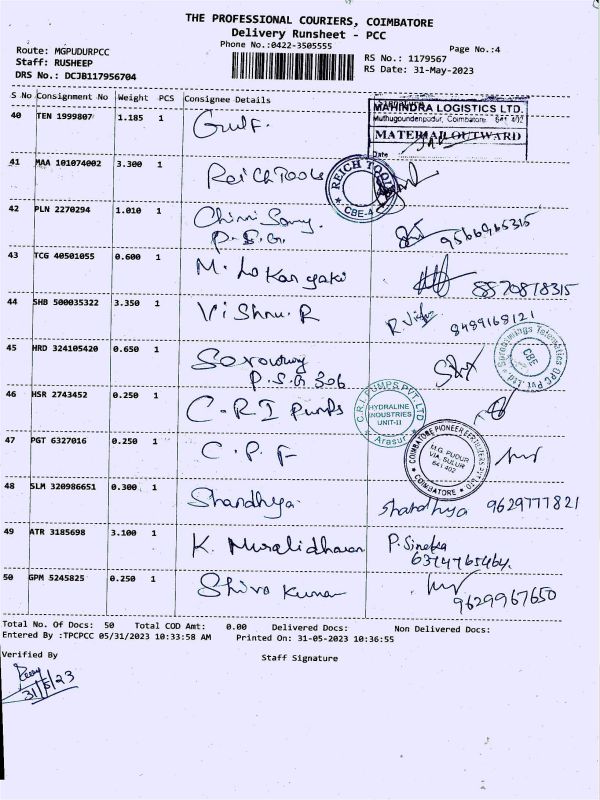 THE PROFESSIONAL COURIERS, COIMBATORE
Delivery Runsheet - PCC
Phone No.:0422-3505555
Page No.:4
Route: MGPUDURPCC
Staff: RUSHEEP
DRS No.: DCJB117956704
RS No.: 1179567
RS Date: 31-May-2023
S No Consignment No Weight PCS Consignee Details
MAHINDRA LOGISTICS LTD.
Muthugoundenpudur, Coimbatore 641 402
MATERIAL OUTWARD
Date
40 TEN 1999807 1.185 1 Gulf.
41 MAA 101074002 3.300 1 Reich Tools
REICH TOOLS
CBE-4
42 PLN 2270294 1.010 1 Chinni Samy.
P.S.G. 9566965315
43 TCG 40501055 0.600 1 M. Lokanyaki 8870818315
44 SHB 500035322 3.350 1 Vishnu.R R. Vishnu 8489168121
45 HRD 324105420 0.650 1
P.S.G 306
CBE
46 HSR 2743452 0.250 1 C.R.I Pumps
C.R.I. PUMPS PVT. LTD
HYDRALINE
INDUSTRIES
UNIT-II
Arasur
47 PGT 6327016 0.250 1 C.P.F
COIMBATORE PIONEER FERTILIZERS PVT LTD
M.G. PUDUR
VIA. SULUR
641 402
COIMBATORE
48 SLM 320986651 0.300 1 Shandhya. Shandhya 9629777821
49 ATR 3185698 3.100 1 K. Muralidharan P. Sineka
6374765464.
50 GPM 5245825 0.250 1 Shiva Kumar
9629967650
Total No. Of Docs: 50 Total COD Amt: 0.00 Delivered Docs: Non Delivered Docs:
Entered By :TPCPCC 05/31/2023 10:33:58 AM Printed On: 31-05-2023 10:36:55
Verified By
Staff Signature
31/5/23